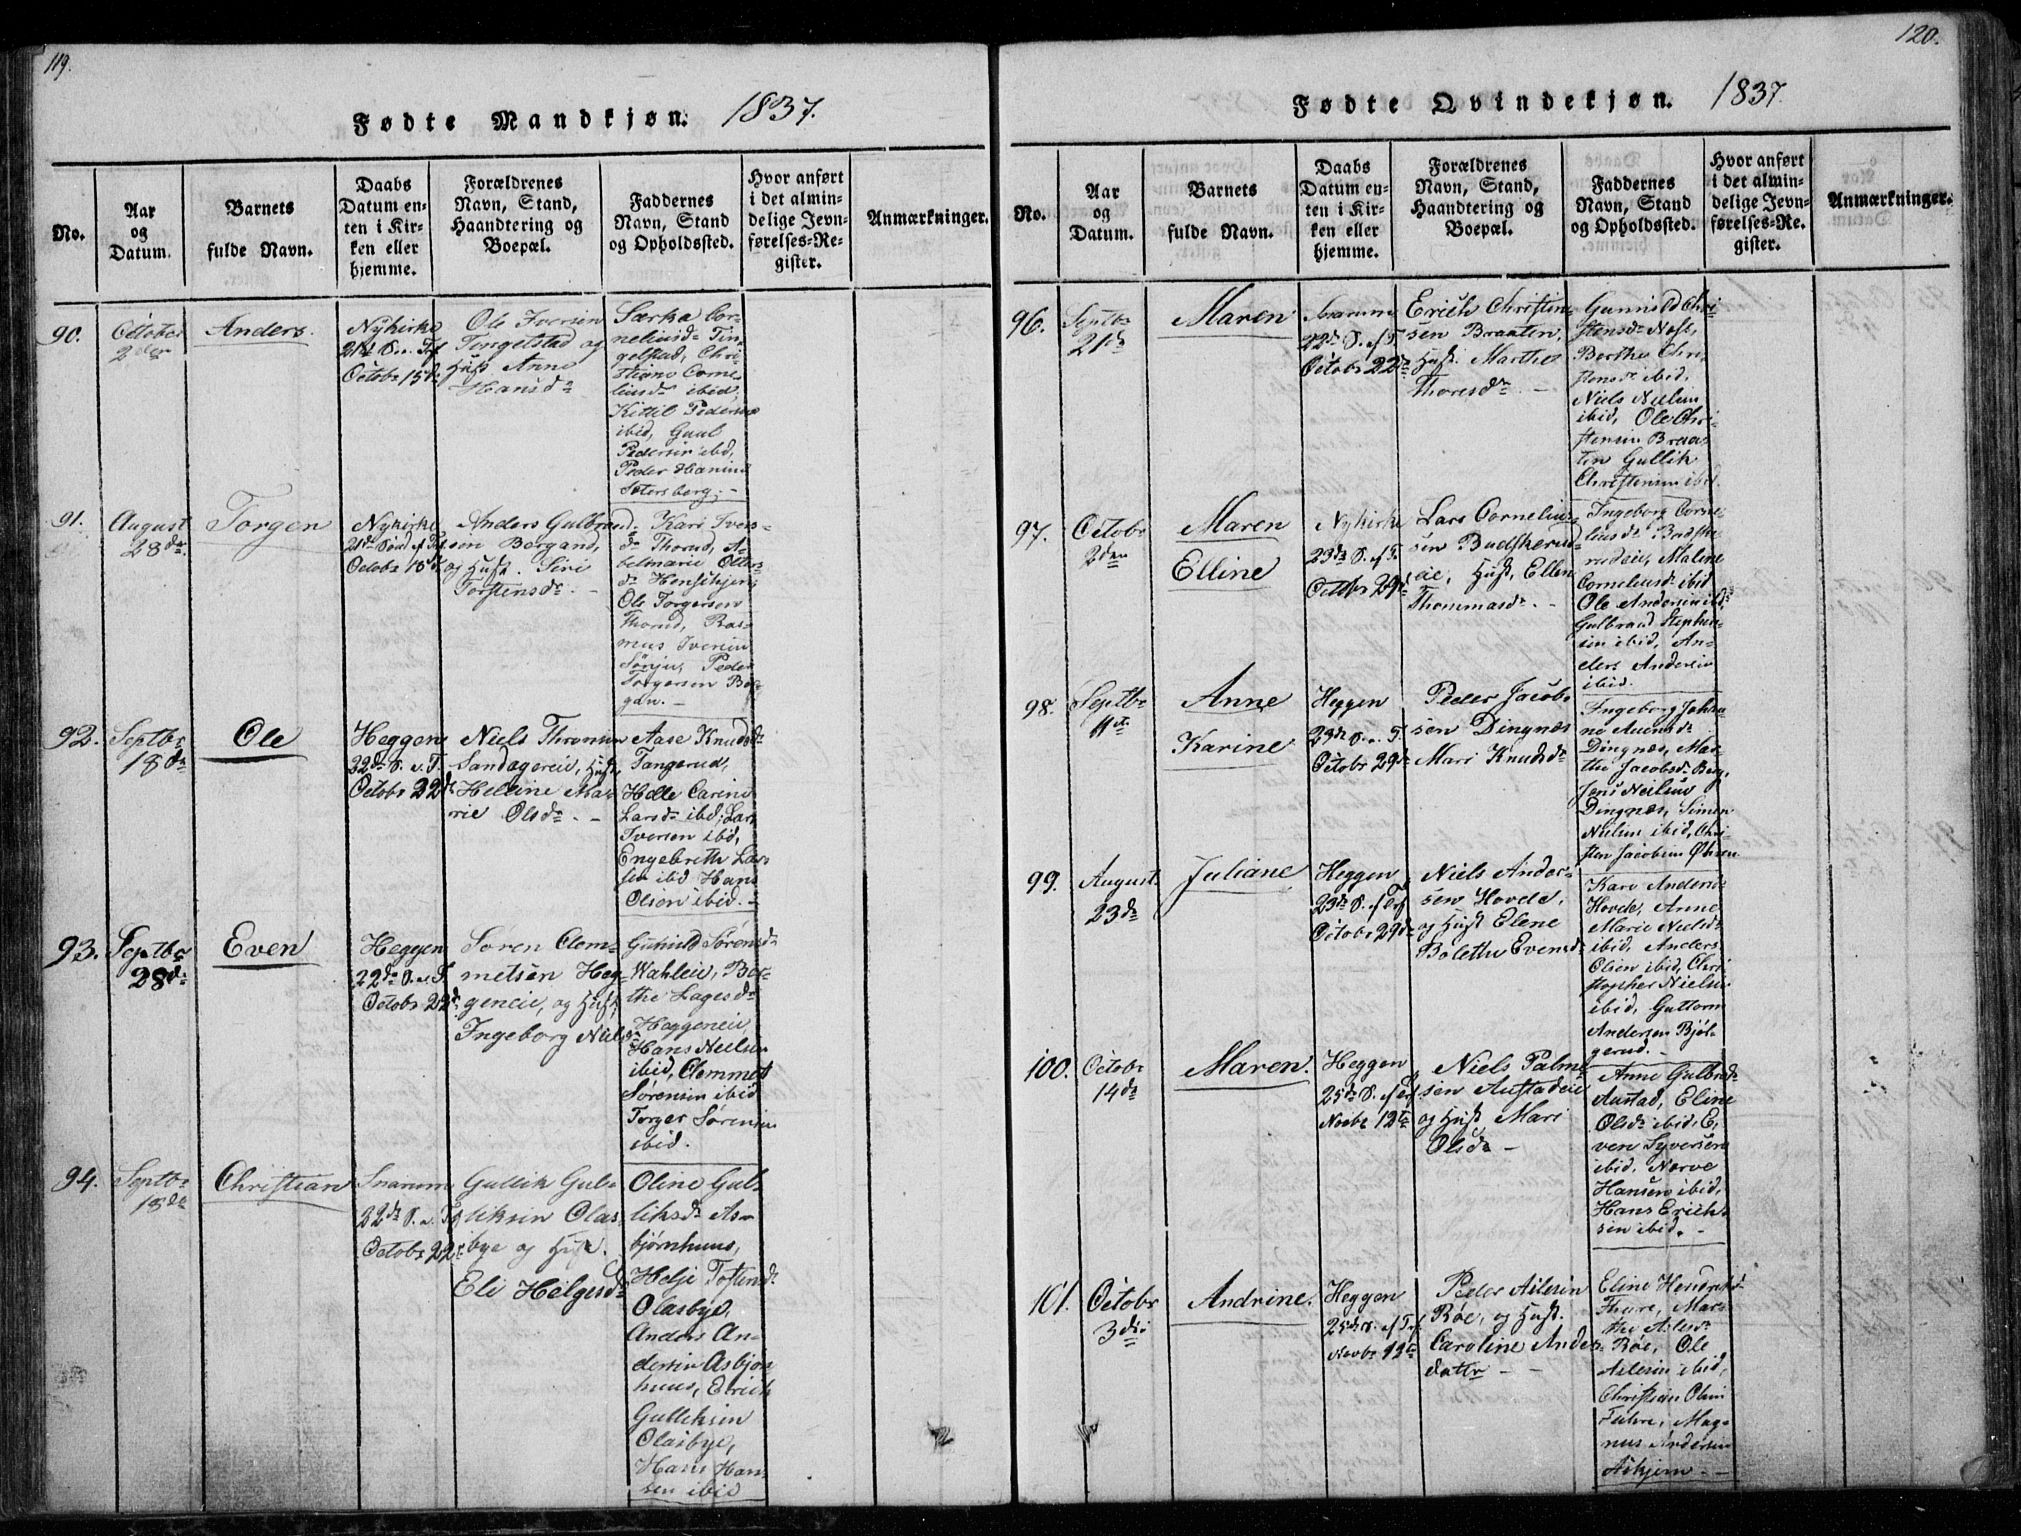 119.
Fødte Mandkjøn. 1837.
No.
Aar
og
Datum.
Barnets
fulde Navn.
Daabs
Datum en-
ten i Kir-
ken eller
hjemme.
Forældrenes
Navn, Stand,
Haandtering og
Boepæl.
Faddernes
Navn, Stand
og Opholdssted.
Hvor anført
i det almin-
delige Jevn-
førelses-Re-
gister.
Anmærkninger.
90.
October
2den
Anders.
Nykirke
21d S. e. Trf
Octobr 15d
Ole Iversen
Tongelstad og
Hust. Anne
Hansdr
Cor-
neliusdr Tin-
gelstad, Chri-
stiane Corne-
liusdr ibid,
Kittil Pedersen
ibid, Gaul
Pedersen ibid,
Peder Hansen
91.
August
28de
Torgen
Nykirke
Octobr 15d
Anders Gulbrand-
sen Bergand,
og Hust. Siri
Torstensdr. -
Kari Ivers-
dr Thorud, A-
belmarie Olles-
dr
Ole Torgersen
Thorud, Ras-
mus Iversen
Peder
Torgersen Ber-
gan. -
92.
Septbr
18de
Ole
Heggen
22de S. e. T.
Octobr 22d
Niels Thronsen
Sandagereie, Hust.
Helline Ma-
rie Olsdr. -
Aase Knudsdr
Tangerud,
Helle Carine
Larsdr ibid, Lars
Iversen ibid,
Engebreth Lar-
sen ibid Hans
Olsen ibid. -
93.
Septbr
28de
Even
Heggen
22de S. e. T.
Octobr 22d
Søren Clem-
metsen Heg-
geneie, og Hust.
Ingeborg Nielsdr
Gunild Sørensdr
Wahleie, Ber-
the Lagesdr
Heggeneie,
Hans Nielsen
ibid, Clemmet
Sørensen ibid
Torger Sørensen
ibid.
94.
Septbr
18de
Christian
Snarum
22de S. e. Tf
Octobr 22d
Gullik Gul-
liksen Olas-
bye og Hust.
Eli Helgesdr
Oline Gul-
liksdr As-
bjørnhuus,
Helje Tostensdr
Olasbye,
Anders An-
dersen Asbjørn-
huus, Erich
Gulliksen
Olasbye,
Hans Han-
sen ibid
120.
Fødte Qvindekjøn. 1837.
No.
Aar
og
Datum.
Barnets
fulde Navn.
Daabs
Datum en-
ten i Kir-
ken eller
hjemme.
Forældrenes
Navn, Stand,
Haandtering og
Boepæl.
Faddernes
Navn, Stand
og Opholdssted.
Hvor anført
i det almin-
delige Jevn-
førelses-Re-
gister.
Anmærkninger.
96.
Septbr
21de
Maren
Snarum
22de S. ef T.
Octobr 22de
Erich Christen-
sen Braaten,
Hust. Marthe
Thoresdr. -
Gunild Chri-
stensdr
Berthe Chri-
stensdr ibid,
Niels Nielsen
ibid, Ole Chri-
stensen Braa-
ten Gullik
Christensen ibid.
97.
Octobr
2den
Maren
Elline
Nykirke
23de S. ef T.
Octobr 29de
Lars Cornelius-
sen Budskerud-
eie, Hust. Ellen
Thommasdr. -
Ingeborg Corne-
liusdr Budske-
rudeie, Maline
Corneliusdr ibid
Ole Andersen ibid,
Gulbrand Stephen-
sen ibid, An-
ders Andersen
ibid.
98.
Septbr
11te
Anne
Karine
Heggen
23de S. e. T.
Octobr 29de
Peder Jacob-
sen Dingnæs
Mari Knudsdr
Ingeborg
Dingnæs, Mar-
the Jacobsdr Berg,
Jens Nielsen
Dingnæs, Simen
Nielsen ibid, Chri-
sten Jacobsen
99.
August.
23de
Juliane
Heggen
23de S. ef Trf
Octobr 29de
Niels Ander-
sen Hovde,
og Hust Elene
Bolethe Evensdr
Kari Andersdr
Hovde, Anne
Marie Nielsdr
ibid, Anders
Olsen ibid, Chri-
stopher Nielsen
ibid, Guttorm
Andersen Bjøl-
gerud. -
100.
Octobr
14de
Maren.
Heggen
25de S. ef Trf
Novbr 12te
Niels Palm-
sen Austadeie
og Hust Mari
Olsdr -
Anne Gulbrdr
Austad, Eline
Olsdr ibid, E-
ven Syversen
ibid. Narve
Hansen ibid,
Hans Erich-
sen ibid. -
101.
Octobr
3die
Andrine.
Heggen
25de S. ef Trf
Novbr 12te
Peder Aslesen
Røe, og Hust.
Caroline Anders-
datter - -
Eline Hendriksdr
Mar-
the Aslesdr
Røe, Ole
Aslesen ibid,
Christian Olsen
Mag-
nus Andersen
Askjern. -